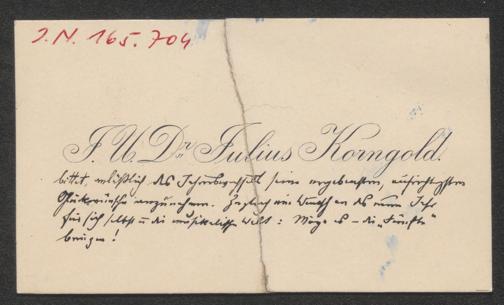 I.N. 165.704
J. U. Dr. Julius Korngold.
bittet, anläßlich des Jahreswechsels seine ergebensten, aufrichtigsten
Glückwünsche anzunehmen. Zugleich ein Wunsch an das neue Jahr
für sich selbst u. die musikalische Welt: Möge es – die „Fünfte“
bringen!